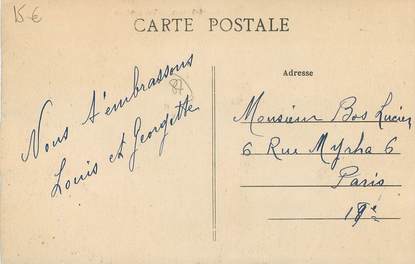 15 €
CARTE POSTALE
87
Nous t'embrassons
Louis et Georgette
Adresse
Monsieur Bos Lucien
6 Rue Myrha 6
Paris